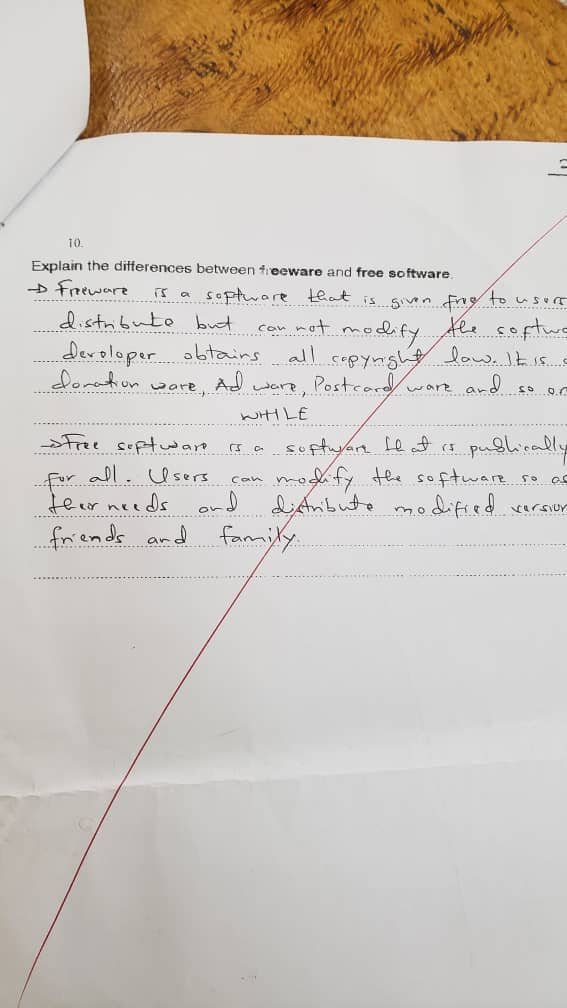 10.
Explain the differences between freeware and free software.
→ Freeware is a software that is given free to users
distribute but can not modify the softwa
developer obtains all copyright law. It is
donation ware, Ad ware, Postcard ware and so on
WHILE
→ Free software is a software that is publically
for all. Users can modify the software so as
their needs and distribute modified version
friends and family.